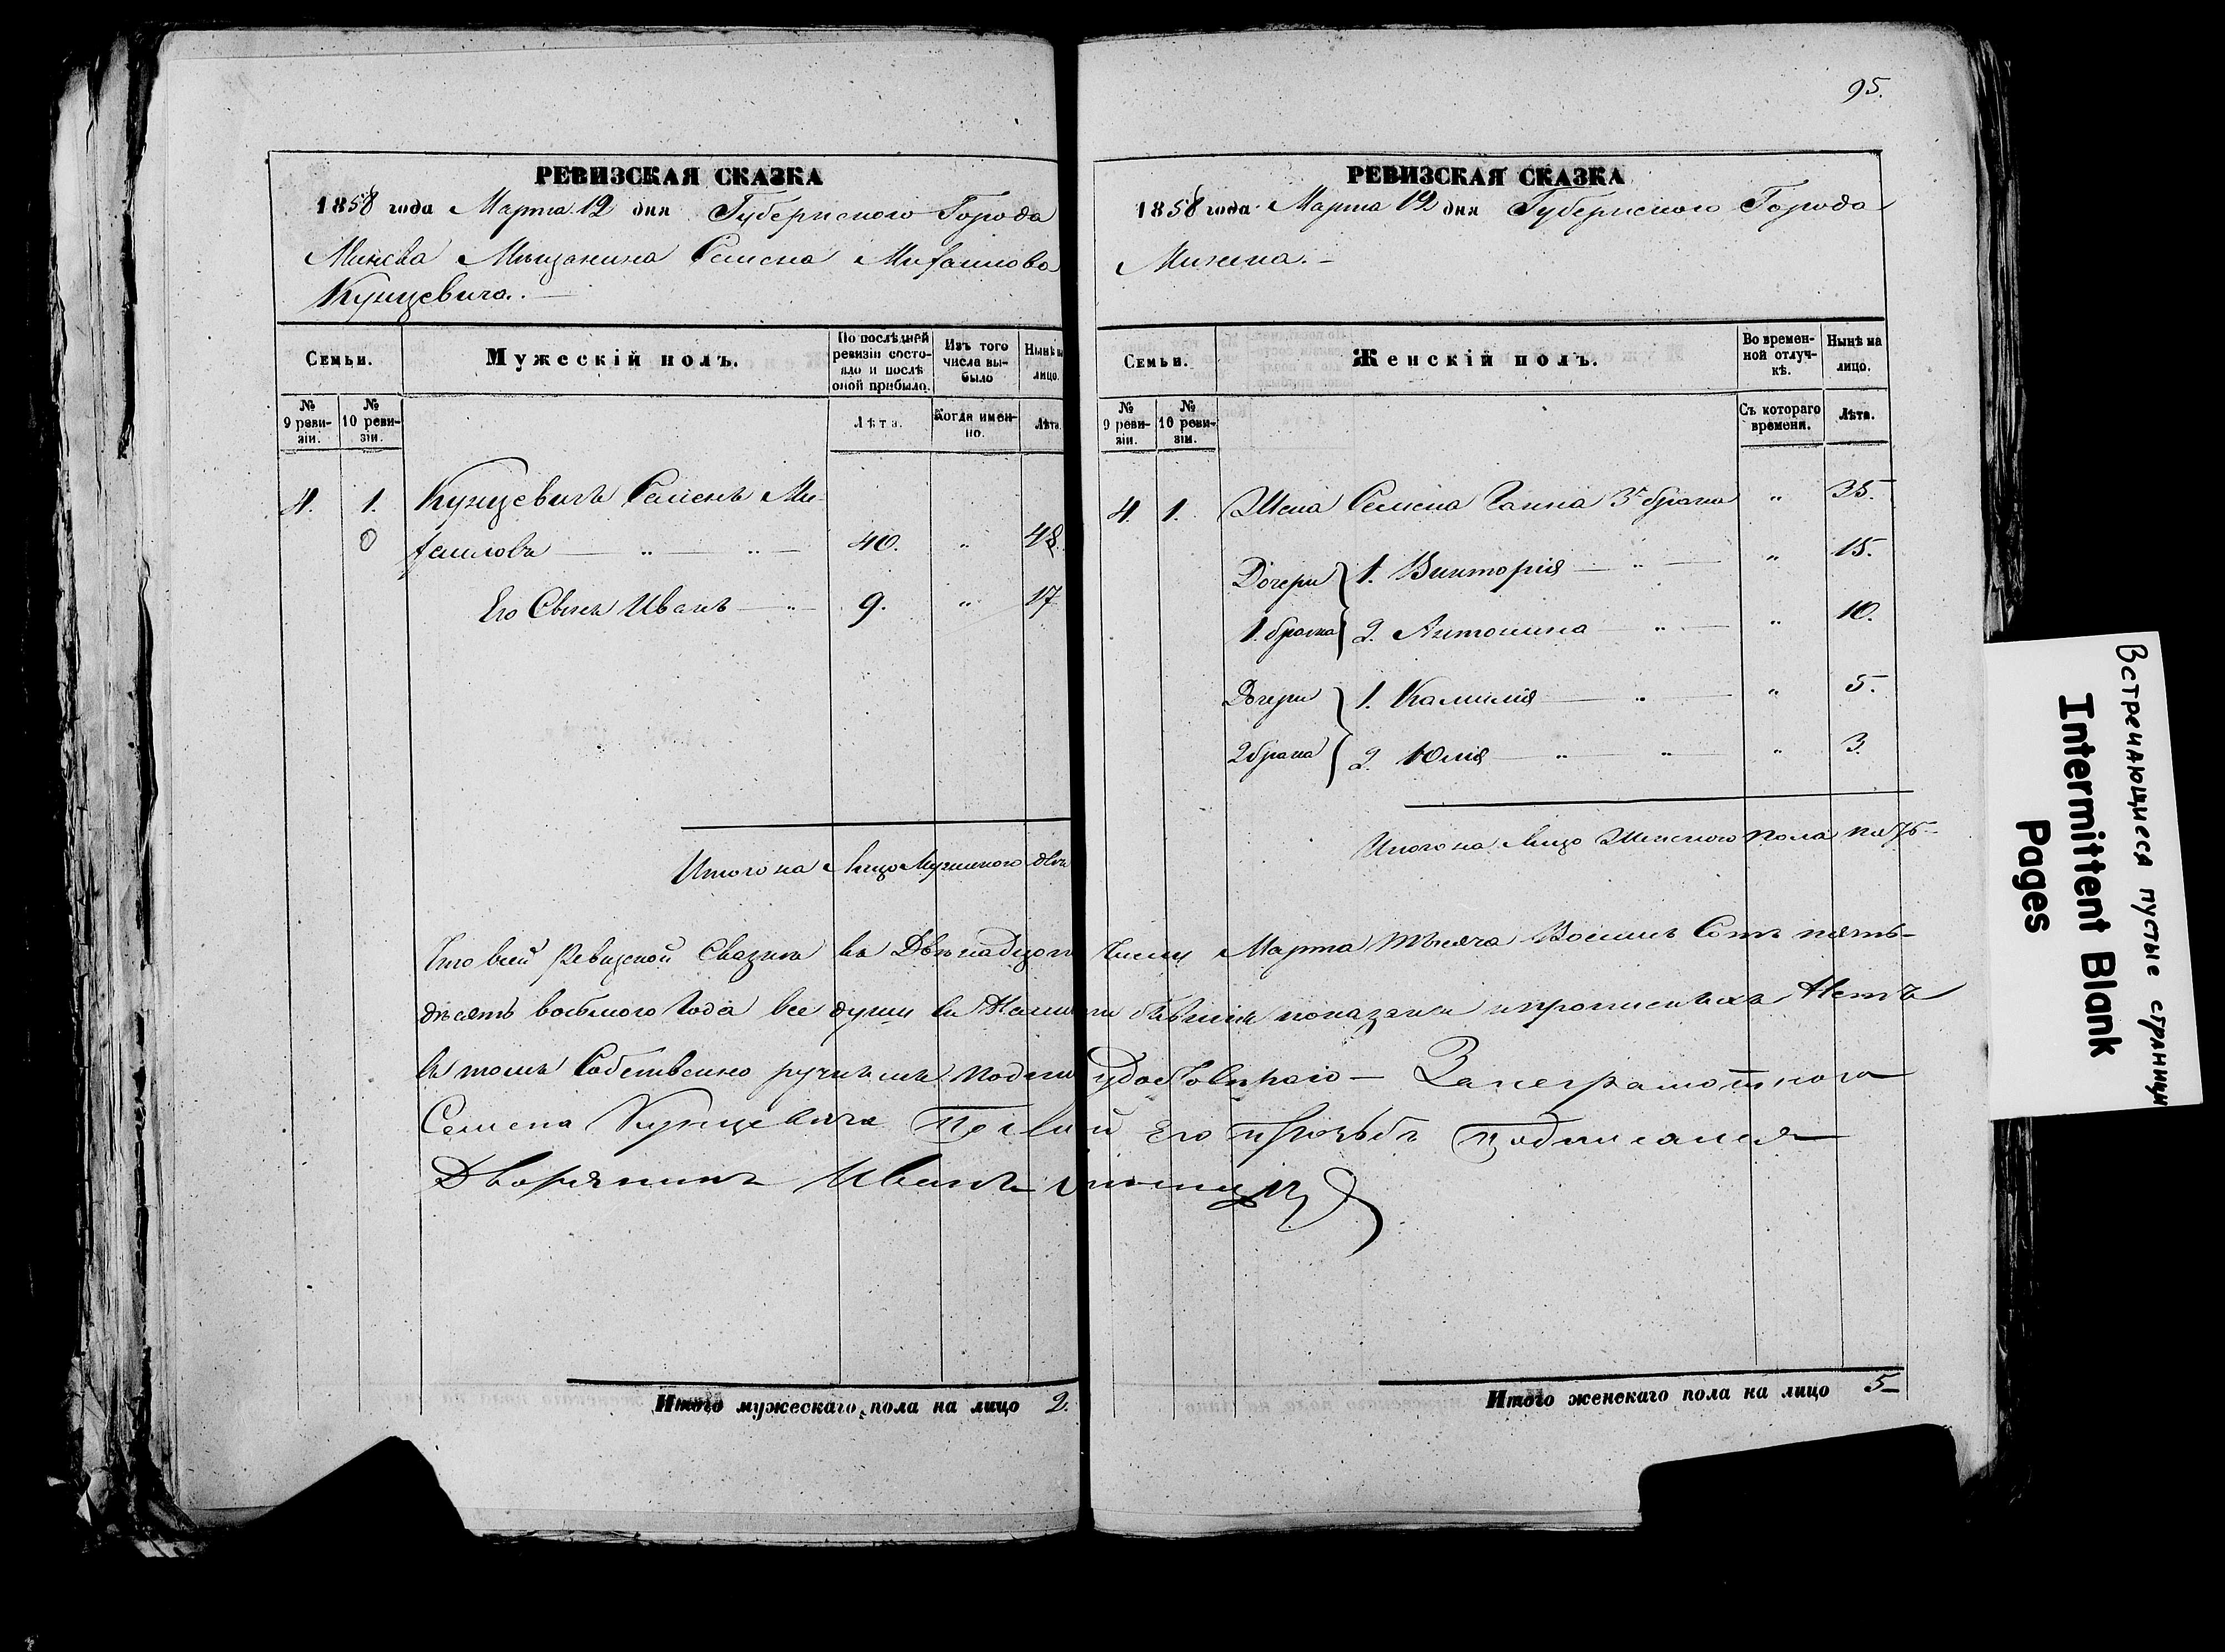 РЕВИЗСКАЯ СКАЗКА
1858 года Марта 12 дня Губернского Города
Минска Мѣщанина Семена Михаилова
Кунцевича.
Семьи.
Мужескій полъ.
По послѣдней ревизіи состояло и послѣ оной прибыло.
Изъ того числа выбыло
Нынѣ на лицо.
№ 9 ревизіи.
№ 10 ревизіи.
Лѣта.
Когда именно.
Лѣта.
4. 1. Кунцевичъ Семенъ Ми-
0 хаиловъ — „ — „ — 40. „ 48.
Его Сынъ Иванъ — „ — 9. „ 17
Итого на Лицо Мужеского два
Что всей Ревизской Сказки въ Двенадцатом
десять восьмого Года все души въ
въ томъ Собственно ручнымъ
Семена Кунцевича По
Дворянинъ Иванъ
Итого мужескаго пола на лицо 2.
95.
РЕВИЗСКАЯ СКАЗКА
1858 года Марта 12 дня Губернского Города
Минска. –
Семьи.
Женскій полъ.
Во временной отлучкѣ.
Нынѣ на лицо.
№ 9 ревизіи.
№ 10 ревизіи.
Съ котораго времени.
Лѣта.
4. 1. Жена Семена Ганна 3г брака „ 35.
Дочери 1. Викторія — „ — „ 15.
1. брака 2. Антонина — „ — „ 10.
Дочери 1. Камилія — „ — „ 5.
2 брака 2. Юлія — „ — „ „ 3.
Итого на Лицо Женского Пола
Числа Марта Тысяча Восемь Сотъ пять-
показаны и прописныхъ Нетъ
За неграмотного
Его прозьбѣ подписался
Итого женскаго пола на лицо 5–
Встречающиеся пустые страницы
Intermittent Blank
Pages